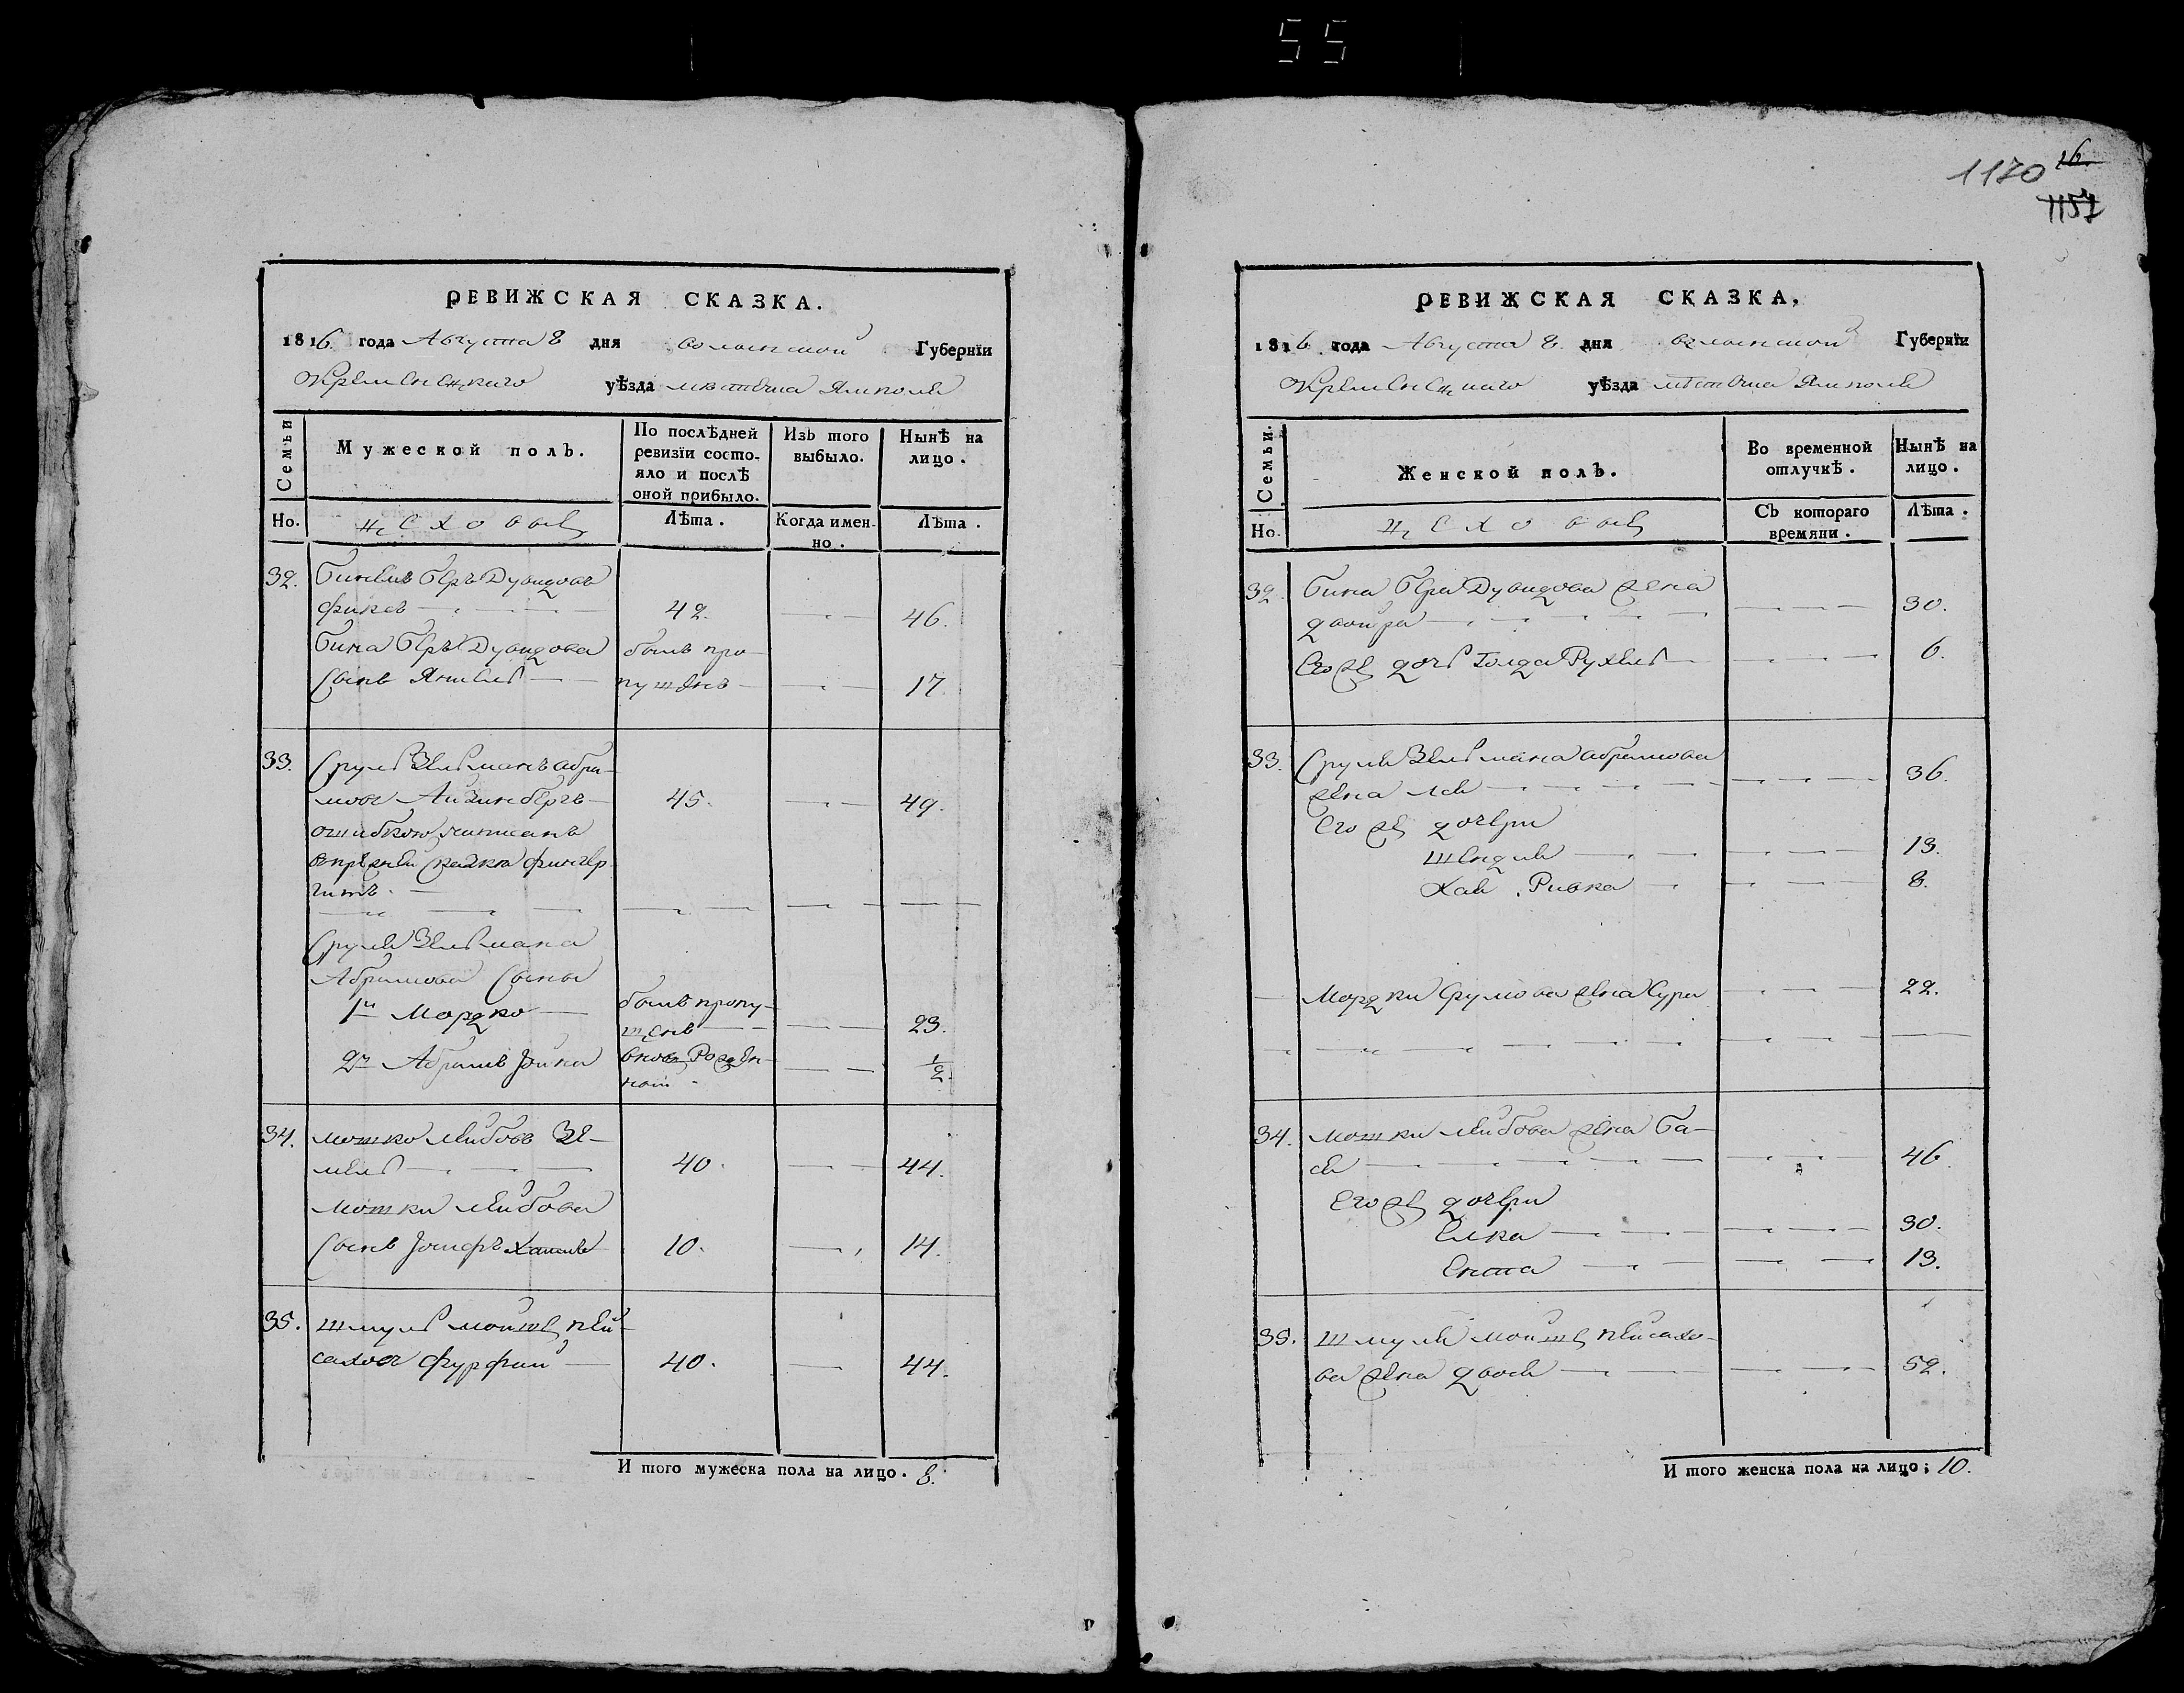 55
РЕВИЖСКАЯ СКАЗКА.
1816 года Августа 8 дня волынской Губернїи
Кременецкаго уѣзда местечка Ямполя
Семьи
Мужеской полъ.
По послѣдней ревизїи состояло и послѣ оной прибыло.
Изъ того выбыло.
Нынѣ на лицо.
Но.
цеховые
Лѣта.
Когда именно.
Лѣта.
32. Бинемъ Беръ Дувидовъ
42. 46.
Бина Беръ Дувидова былъ про-
Сынъ Янкель пущенъ 17.
33. Сруль Зельманъ абра-
мовъ Айзинбергъ 45. 49.
ошибкою написанъ
впрежней сказки фингер
гутъ.
Сруля Зельмана
Абрамова Сыны
1й Мордко былъ пропу-
щенъ 23.
2й Абрамъ Іойна вновь Рожден-
ной 1/2.
34. Мошко Лейбовъ Зе-
мель 40. 44.
Мошки Лейбова
Сынъ Іосифъ Хаимъ 10. 14.
35. Шмуль Мойше Пей-
саховъ 40. 44.
И того мужеска пола на лицо. 8.
1170 16.
1157
РЕВИЖСКАЯ СКАЗКА,
1816 года Августа 8 дня волынской Губернїи
Кременецкаго уѣзда местечка Ямполя
Семьи.
Женской полъ.
Во временной отлучкѣ.
Нынѣ на лицо.
Но.
цеховые
Съ котораго времяни.
Лѣта.
32. Бина Бера Дувидова жена
двойра 30.
Егоже дочь Голда Рухель 6.
33. Сруля Зельмана абрамова
жена Лея 36.
Егоже дочери
Шендля 13.
Хая Ривка 8.
Мордки Срулова жена Сура 22.
34. Мошки Лейбова жена Ба-
ся 46.
Егоже дочери
Елка 30.
Ента 13.
35. Шмуля Мойше Пейсахо-
ва жена двося 52.
И того женска пола на лицо; 10.